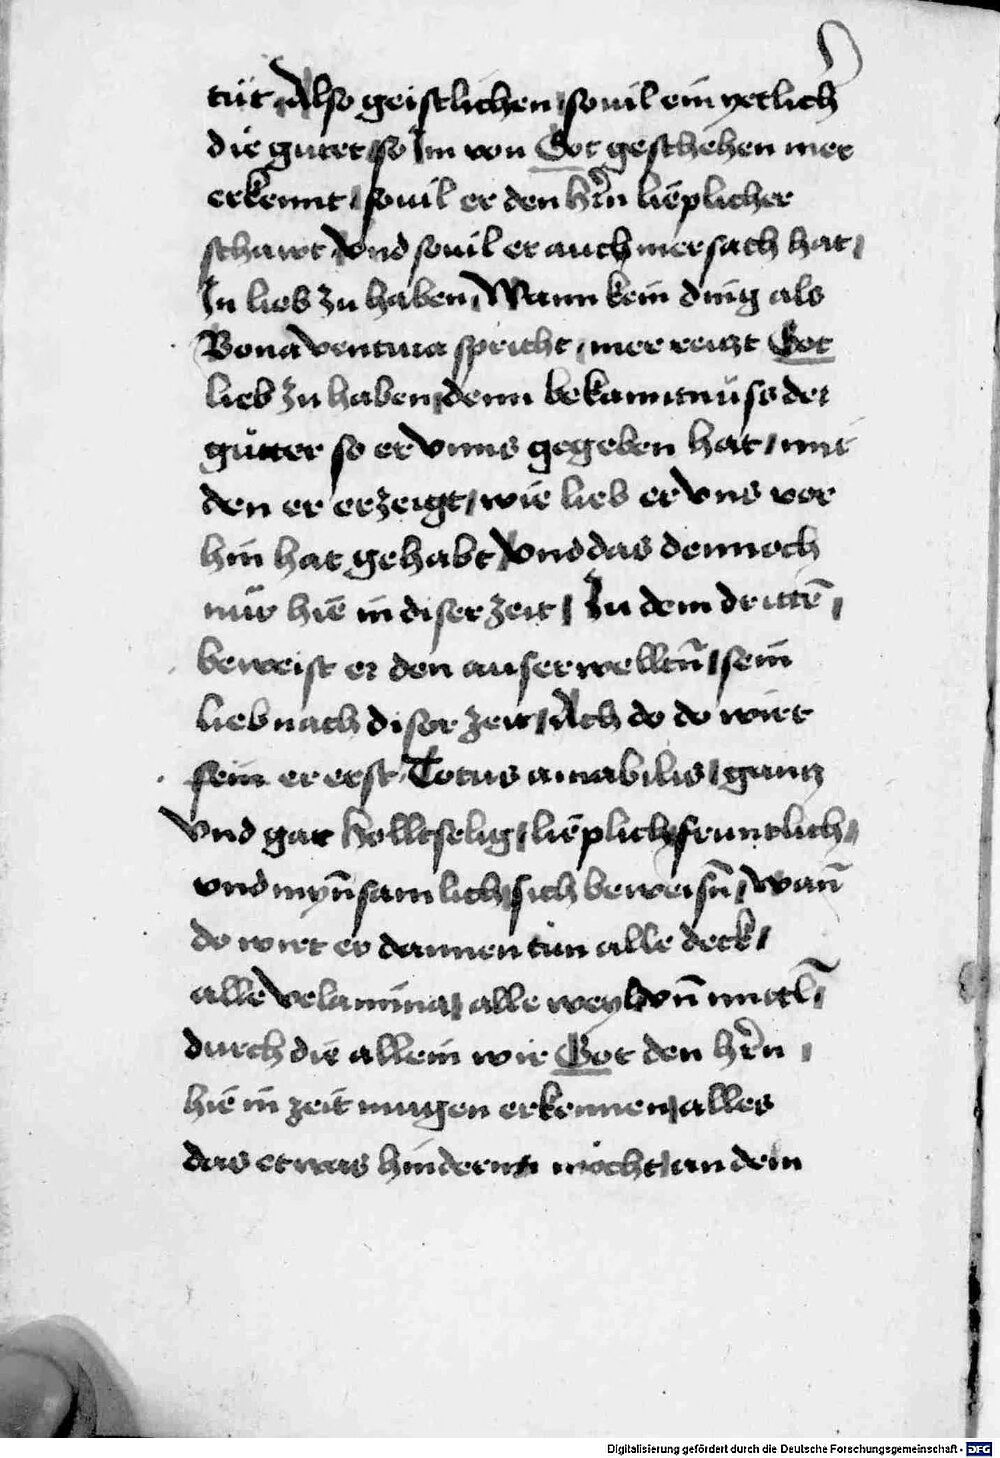 tüt / Also geistlichen / souil ein yetlicher
die gutet / so Im von Got geschehen mer
erkennt / souil er den hr̄n lieplicher
schawt / vnd souil er auch mer sach hat /
In lieb zu haben / Wann kein ding als
Bonaventura spricht / mer reitzt Got
lieb zu haben / denn bekanntnüss der
gütter so er vnns gegeben hat / mit
den er erzeigt / wie lieb er vns vor
hin hat gehabt / vnd das dennoch
nür hie in diser zeit / Zu dem drittē /
beweist er den auserwelltn̄ / sein
lieb nach diser zeit / Ach do do wirt
sein er erst / Totus amabilis / gantz
vnd gar holltselig / lieplich / fruntlich /
vnd myn̄samlich / sich beweisn̄ / wan̄
do wirt er dannen tun alle deck /
alle velamina / alle weyl vn̄ mittl̄ /
durch die allein wir Got den hr̄n /
hie in zeit mugen erkennen / alles
das etwas hindern möcht / an dem
Digitalisierung gefördert durch die Deutsche Forschungsgemeinschaft - DFG